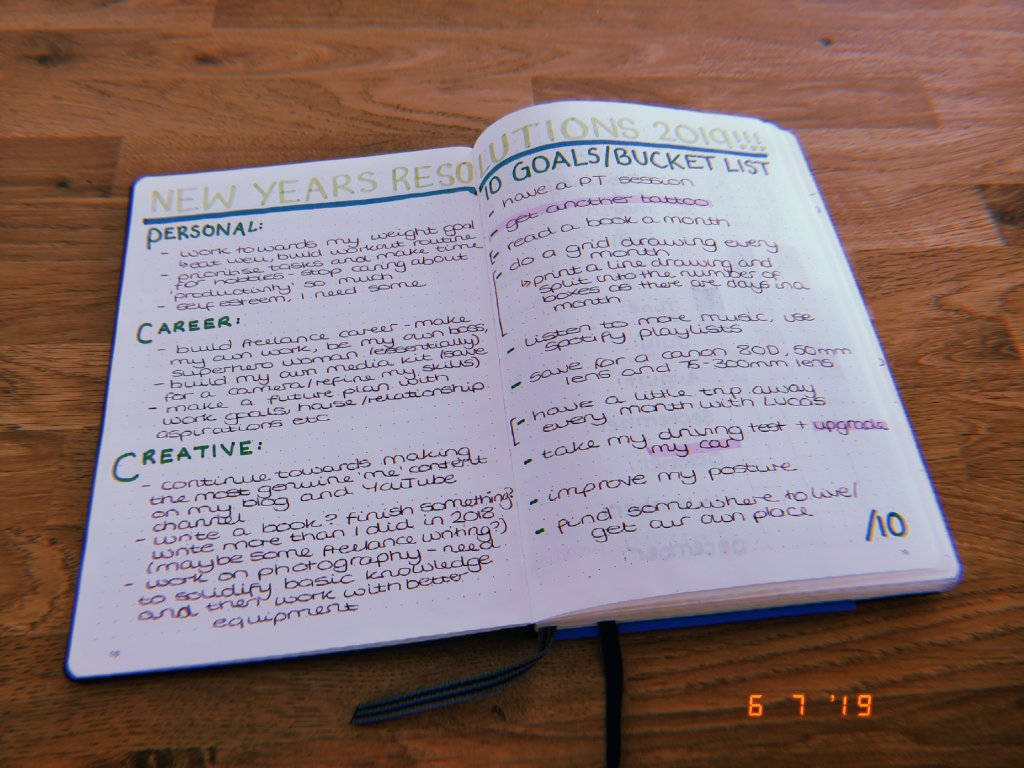 NEW YEARS RESOLUTIONS 2019!!!
PERSONAL:
- work towards my weight goal
but well, build workout routine
- prioritise tasks and make time
for hobbies - stop caring about
'productivity' so much
- self esteem, I need some
CAREER:
- build freelance career - make
my own work, be my own boss,
superhero woman (essentially)
- build my own media kit (save
for a camera/refine my skills)
- make a future plan with
work goals, house/relationship
aspirations etc
CREATIVE:
- continue towards making
the most genuine 'me' content
on my blog and YouTube
channel
- write a book? finish something?
write more than I did in 2018
(maybe some freelance writing?)
- work on photography - need
to solidify basic knowledge
and then work with better
equipment
10 GOALS/BUCKET LIST
- have a PT session
- get another tattoo
- read a book a month
- do a grid drawing every
month
↳ print a line drawing and
split into the number of
boxes as there are days in a
month
- Listen to more music, use
Spotify playlists
- save for a canon 80D, 50mm
lens and 75-300mm lens
- have a little trip away
every month with Lucas
- take my driving test + upgrade
my car
- improve my posture
- find somewhere to live/
get our own place
/10
December
6 7 '19